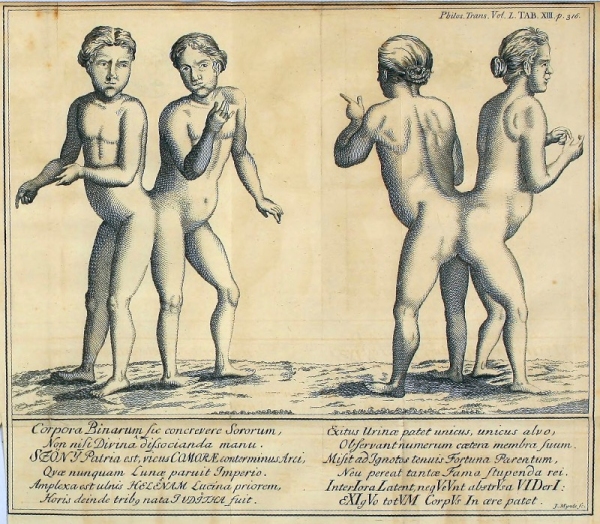 Philos. Trans. Vol. L. TAB. XIII. p. 316.
Corpora Binarum sic concrevere Sororum,
Non nisi Divina dissocianda manu.
SZONY Patria est, vicus COMORÆ conterminus Arci,
Qvæ nunquam Lunæ paruit Imperio.
Amplexa est ulnis HELENAM Lucina priorem,
Horis deinde tribq nata IUDITHA fuit.
Exitus Urinæ patet unicus, unicus alvo;
Observant numerum cætera membra suum.
Misit ad Ignotos tenuis Fortuna Parentum,
Neu pereat tantæ Fama stupenda rei.
InterIora Latent, neqVeVnt abstrVsa VIDerI:
EXIgVo totVM CorpVs In ære patet.
J. Mynde sc.